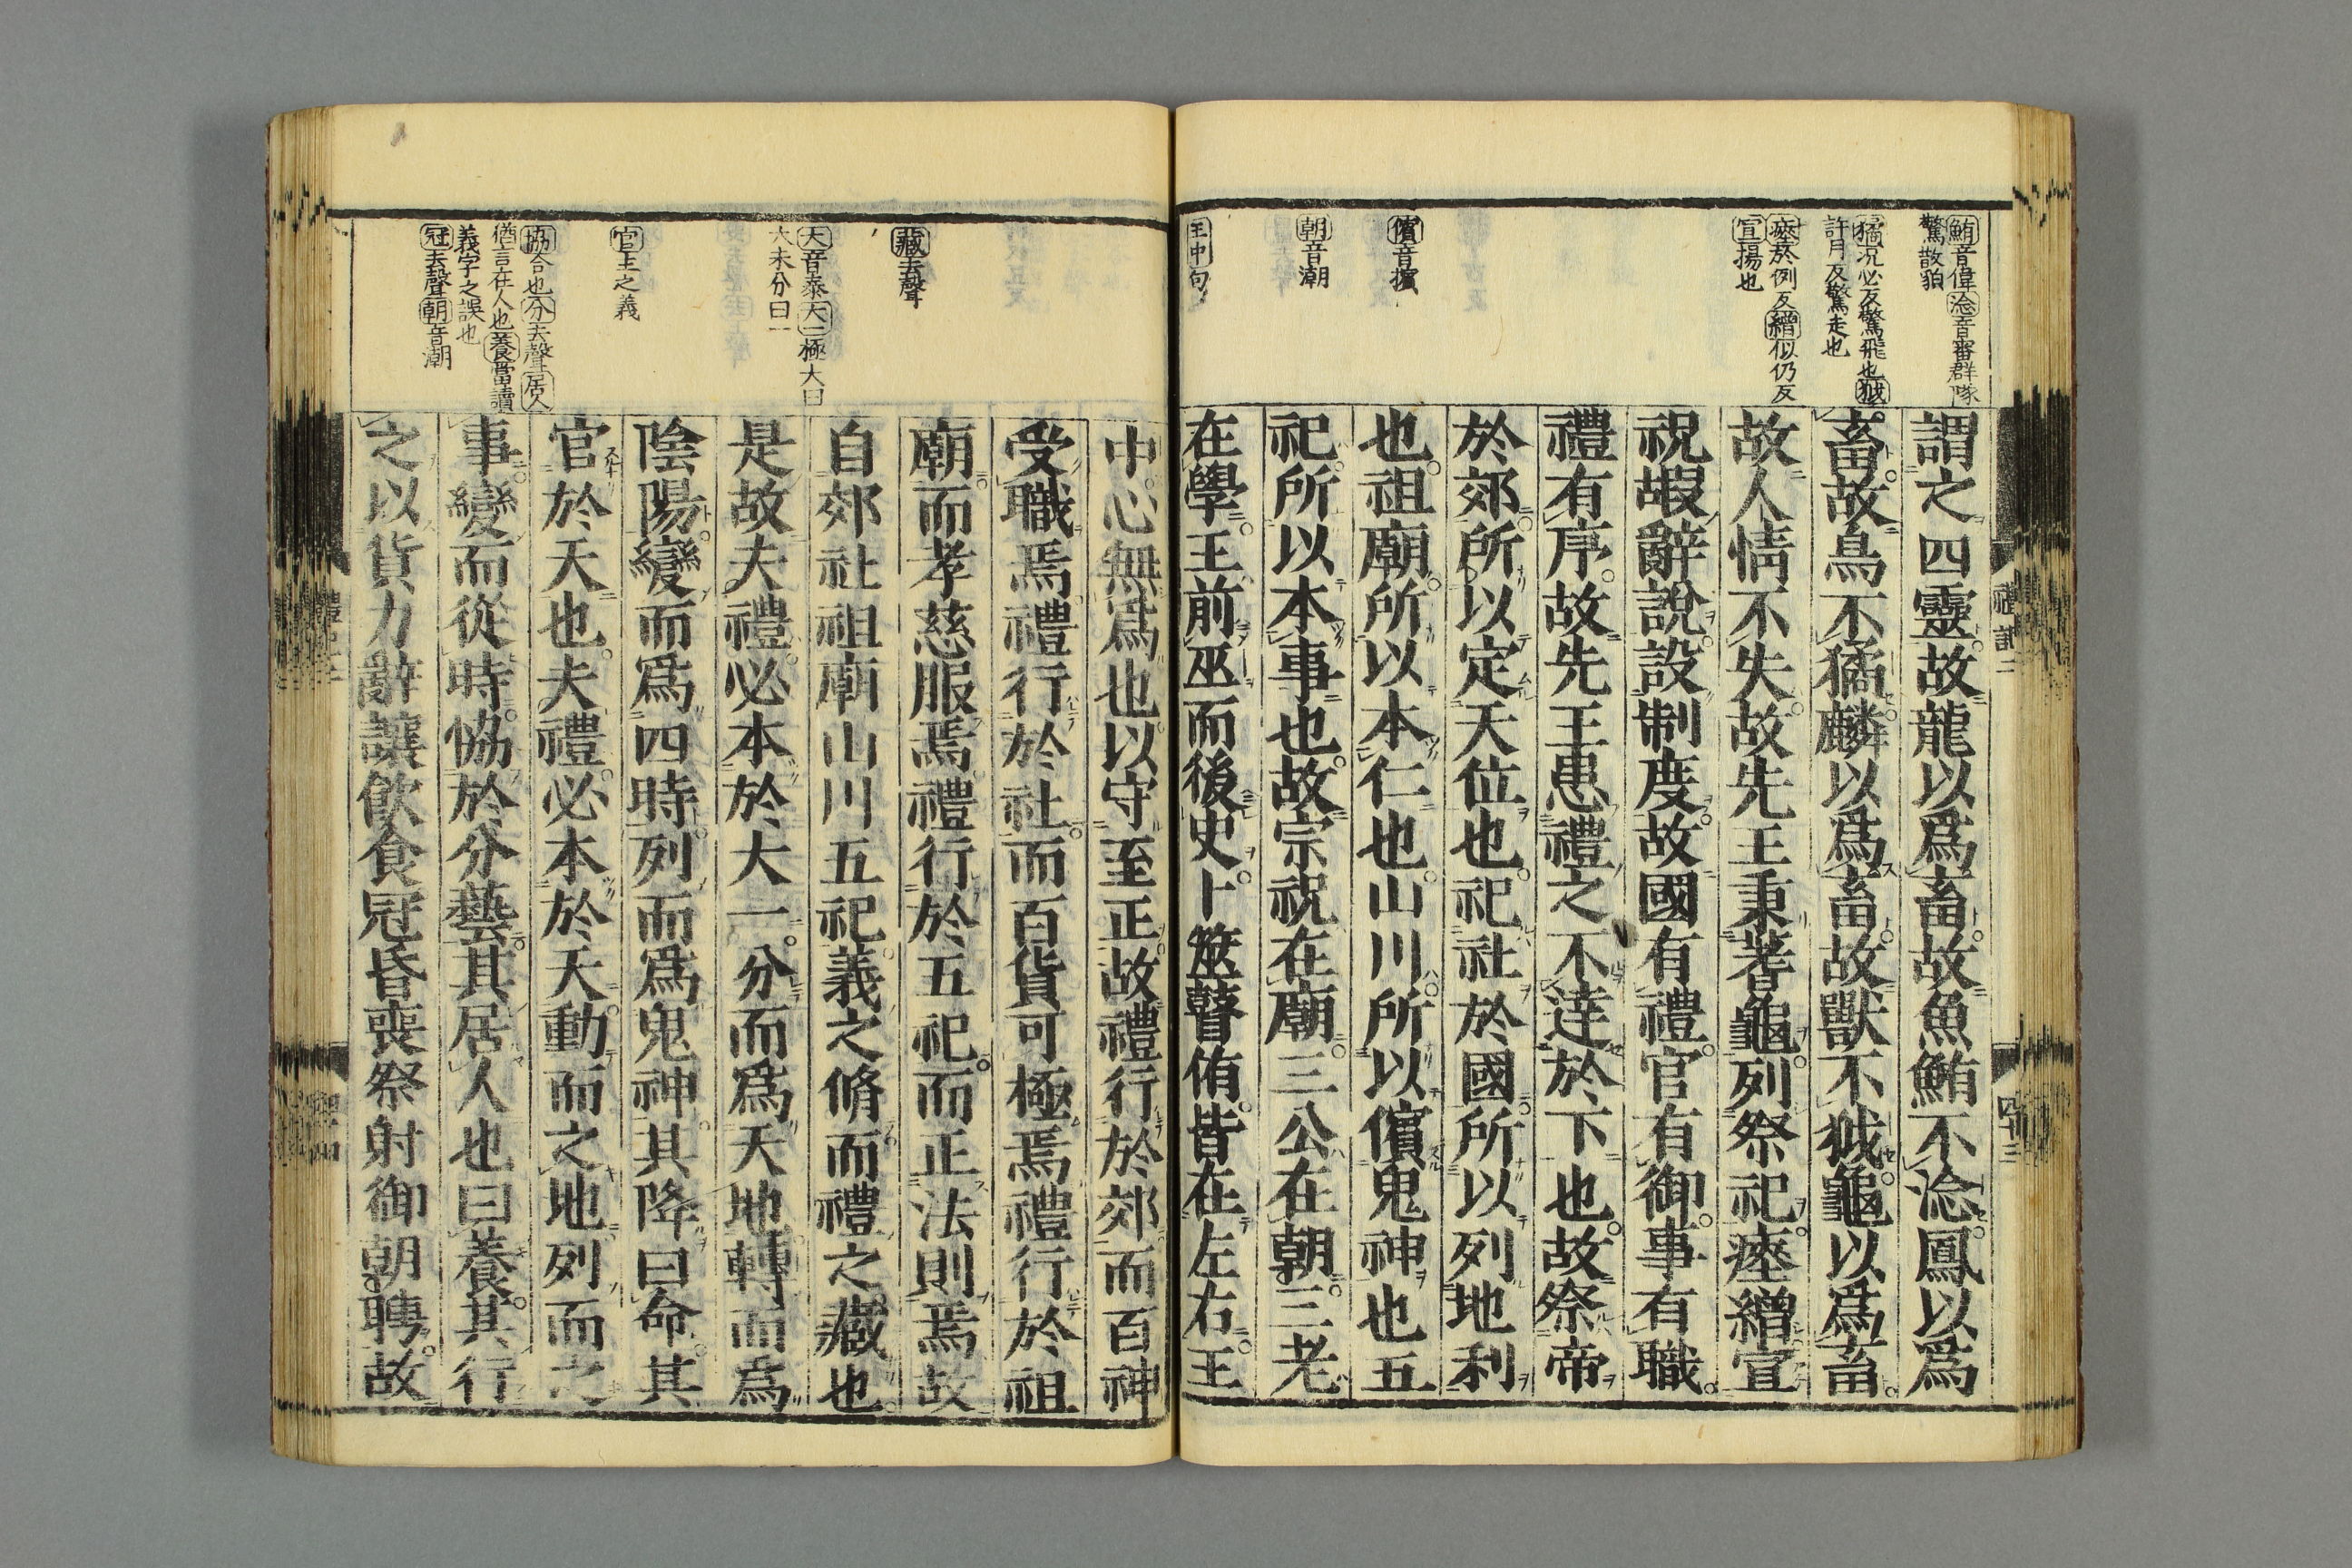 鮪音偉淰音審群隊
驚散貌
獝况必反驚飛也狘
許月反驚走也
瘞於例反繒似仍反
宣揚也
儐音擯
朝音潮
王中句
謂之四靈故龍以爲畜故魚鮪不淰鳳以爲
畜故鳥不獝麟以爲畜故獸不狘龜以爲畜
故人情不失故先王秉蓍龜列祭祀瘞繒宣
祝嘏辭說設制度故國有禮官有御事有職
禮有序故先王患禮之不達於下也故祭帝
於郊所以定天位也祀社於國所以列地利
也祖廟所以本仁也山川所以儐鬼神也五
祀所以本事也故宗祝在廟三公在朝三老
在學王前巫而後史卜筮瞽侑皆在左右王
禮記二
四十三
藏去聲
大音泰大一極大曰
大未分曰一
官主之義
協合也分去聲居人
猶言在人也養當讀
義字之誤也
冠去聲朝音潮
中心無爲也以守至正故禮行於郊而百神
受職焉禮行於社而百貨可極焉禮行於祖
廟而孝慈服焉禮行於五祀而正法則焉故
自郊社祖廟山川五祀義之脩而禮之藏也
是故夫禮必本於大一分而爲天地轉而爲
陰陽變而爲四時列而爲鬼神其降曰命其
官於天也夫禮必本於天動而之地列而之
事變而從時協於分藝其居人也曰養其行
之以貨力辭讓飲食冠昏喪祭射御朝聘故